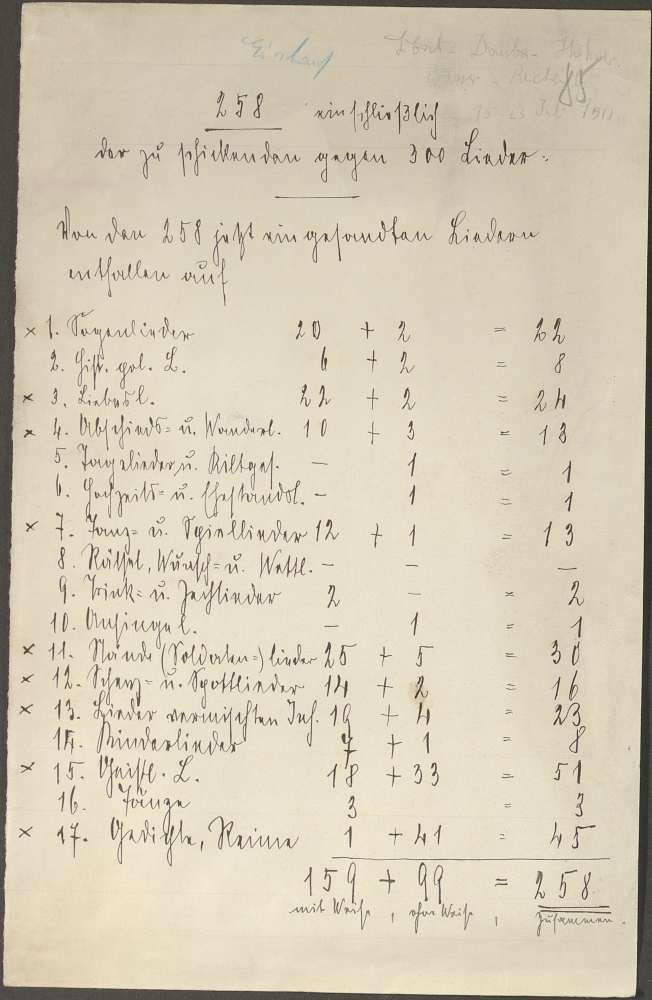 Einlauf
85
258 einschließlich
der zu schickenden gegen 300 Lieder.
Von den 258 jetzt eingesandten Liedern
entfallen auf
x 1. Sagenlieder 20 + 2 = 22
2. Hist. pol. L. 6 + 2 = 8
x 3. Liebesl. 22 + 2 = 24
x 4. Abschieds= u. Wanderl. 10 + 3 = 13
5. Tagelieder u. Kiltges. — 1 = 1
6. Hochzeits= u. Ehestandsl. — 1 = 1
x 7. Tanz= u. Spiellieder 12 + 1 = 13
8. Räthsel, Wunsch= u. Wettl. — — —
9. Trink= u. Zechlieder 2 — = 2
10. Ansingel. — 1 = 1
x 11. Stände (Soldaten=) lieder 25 + 5 = 30
x 12. Scherz= u. Spottlieder 14 + 2 = 16
x 13. Lieder vermischten Inh. 19 + 4 = 23
14. Kinderlieder 7 + 1 = 8
x 15. Geistl. L. 18 + 33 = 51
16. Tänze 3 = 3
x 17. Gedichte, Reime 1 + 41 = 45
159 + 99 = 258
mit Weise, ohne Weise, zusammen.